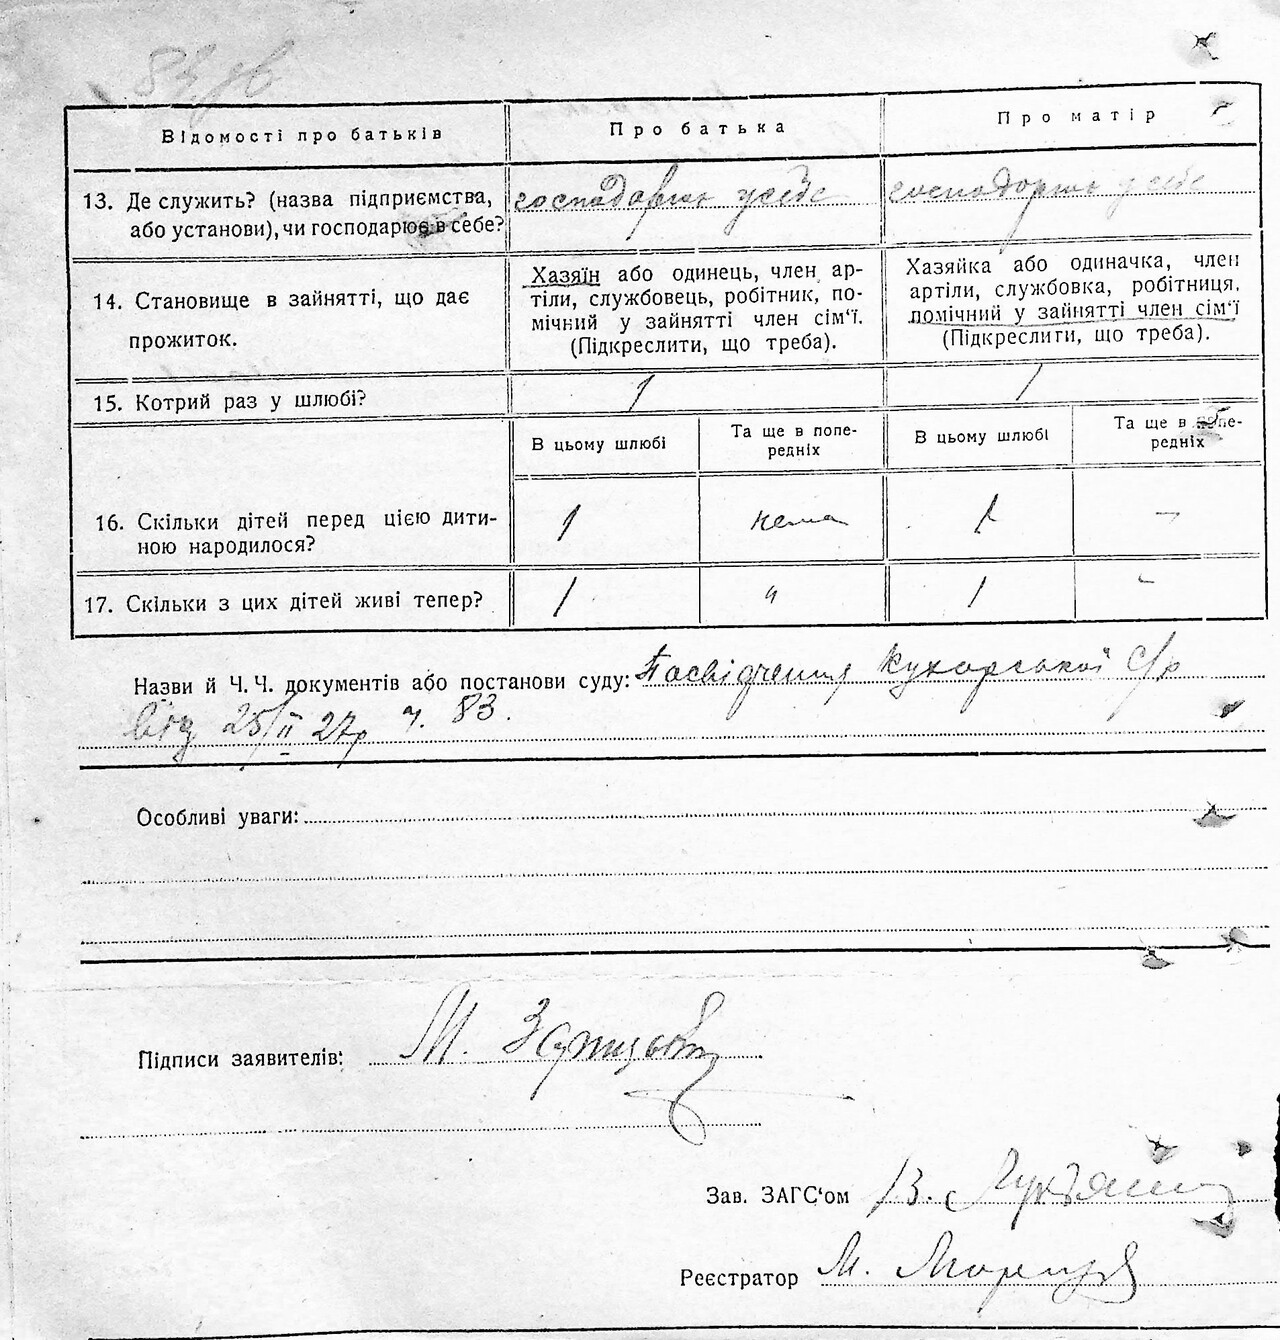 83 зв
Відомості про батьків
Про батька
Про матір
13. Де служить? (назва підприємства,
або установи), чи господарює в себе?
господарює у себе
господорює у себе
14. Становище в зайнятті, що дає
прожиток.
Хазяїн або одинець, член ар-
тіли, службовець, робітник, по-
мічний у зайнятті член сім‘ї.
(Підкреслити, що треба).
Хазяйка або одиначка, член
артіли, службовка, робітниця,
помічний у зайнятті член сім‘ї
(Підкреслити, що треба).
15. Котрий раз у шлюбі?
1
1
В цьому шлюбі
Та ще в попе-
редніх
В цьому шлюбі
Та ще в попе-
редніх
16. Скільки дітей перед цією дити-
ною народилося?
1
нема
1
—
17. Скільки з цих дітей живі тепер?
1
"
1
-
Назви й Ч. Ч. документів або постанови суду: Посвідчення Кухарської с/р
від 25/II 27р ч. 83.
Особливі уваги:
Підписи заявителів: М.
Зав. ЗАГС‘ом В.
Реєстратор М.